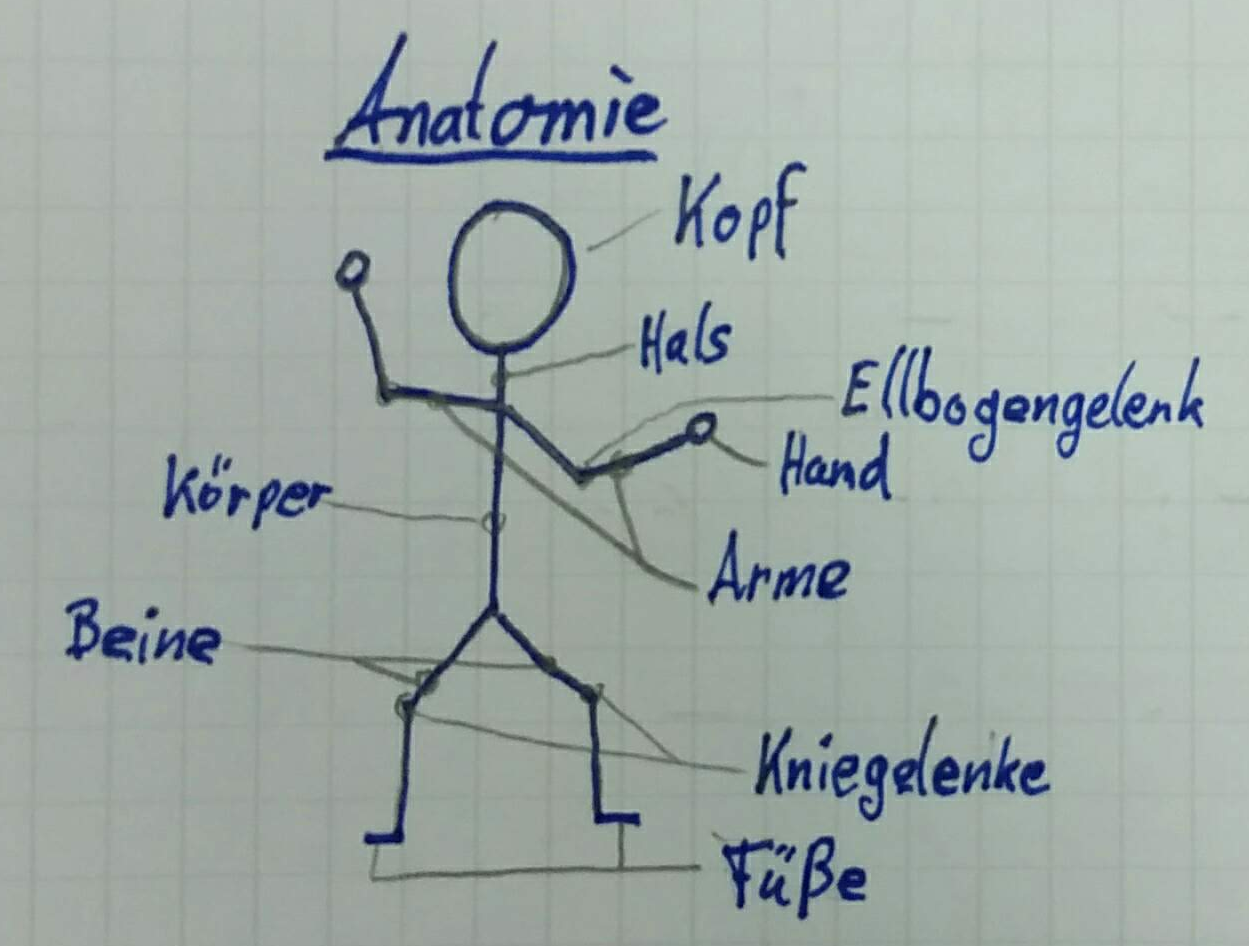 Anatomie
Kopf
Hals
Ellbogengelenk
Hand
Körper
Arme
Beine
Kniegelenke
Füße